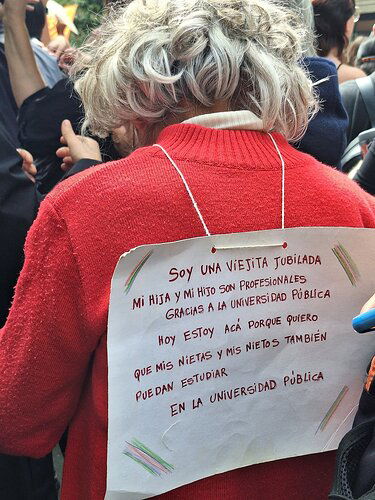 SOY UNA VIEJITA JUBILADA
MI HIJA Y MI HIJO SON PROFESIONALES
GRACIAS A LA UNIVERSIDAD PÚBLICA
HOY ESTOY ACÁ PORQUE QUIERO
QUE MIS NIETAS Y MIS NIETOS TAMBIÉN
PUEDAN ESTUDIAR
EN LA UNIVERSIDAD PÚBLICA